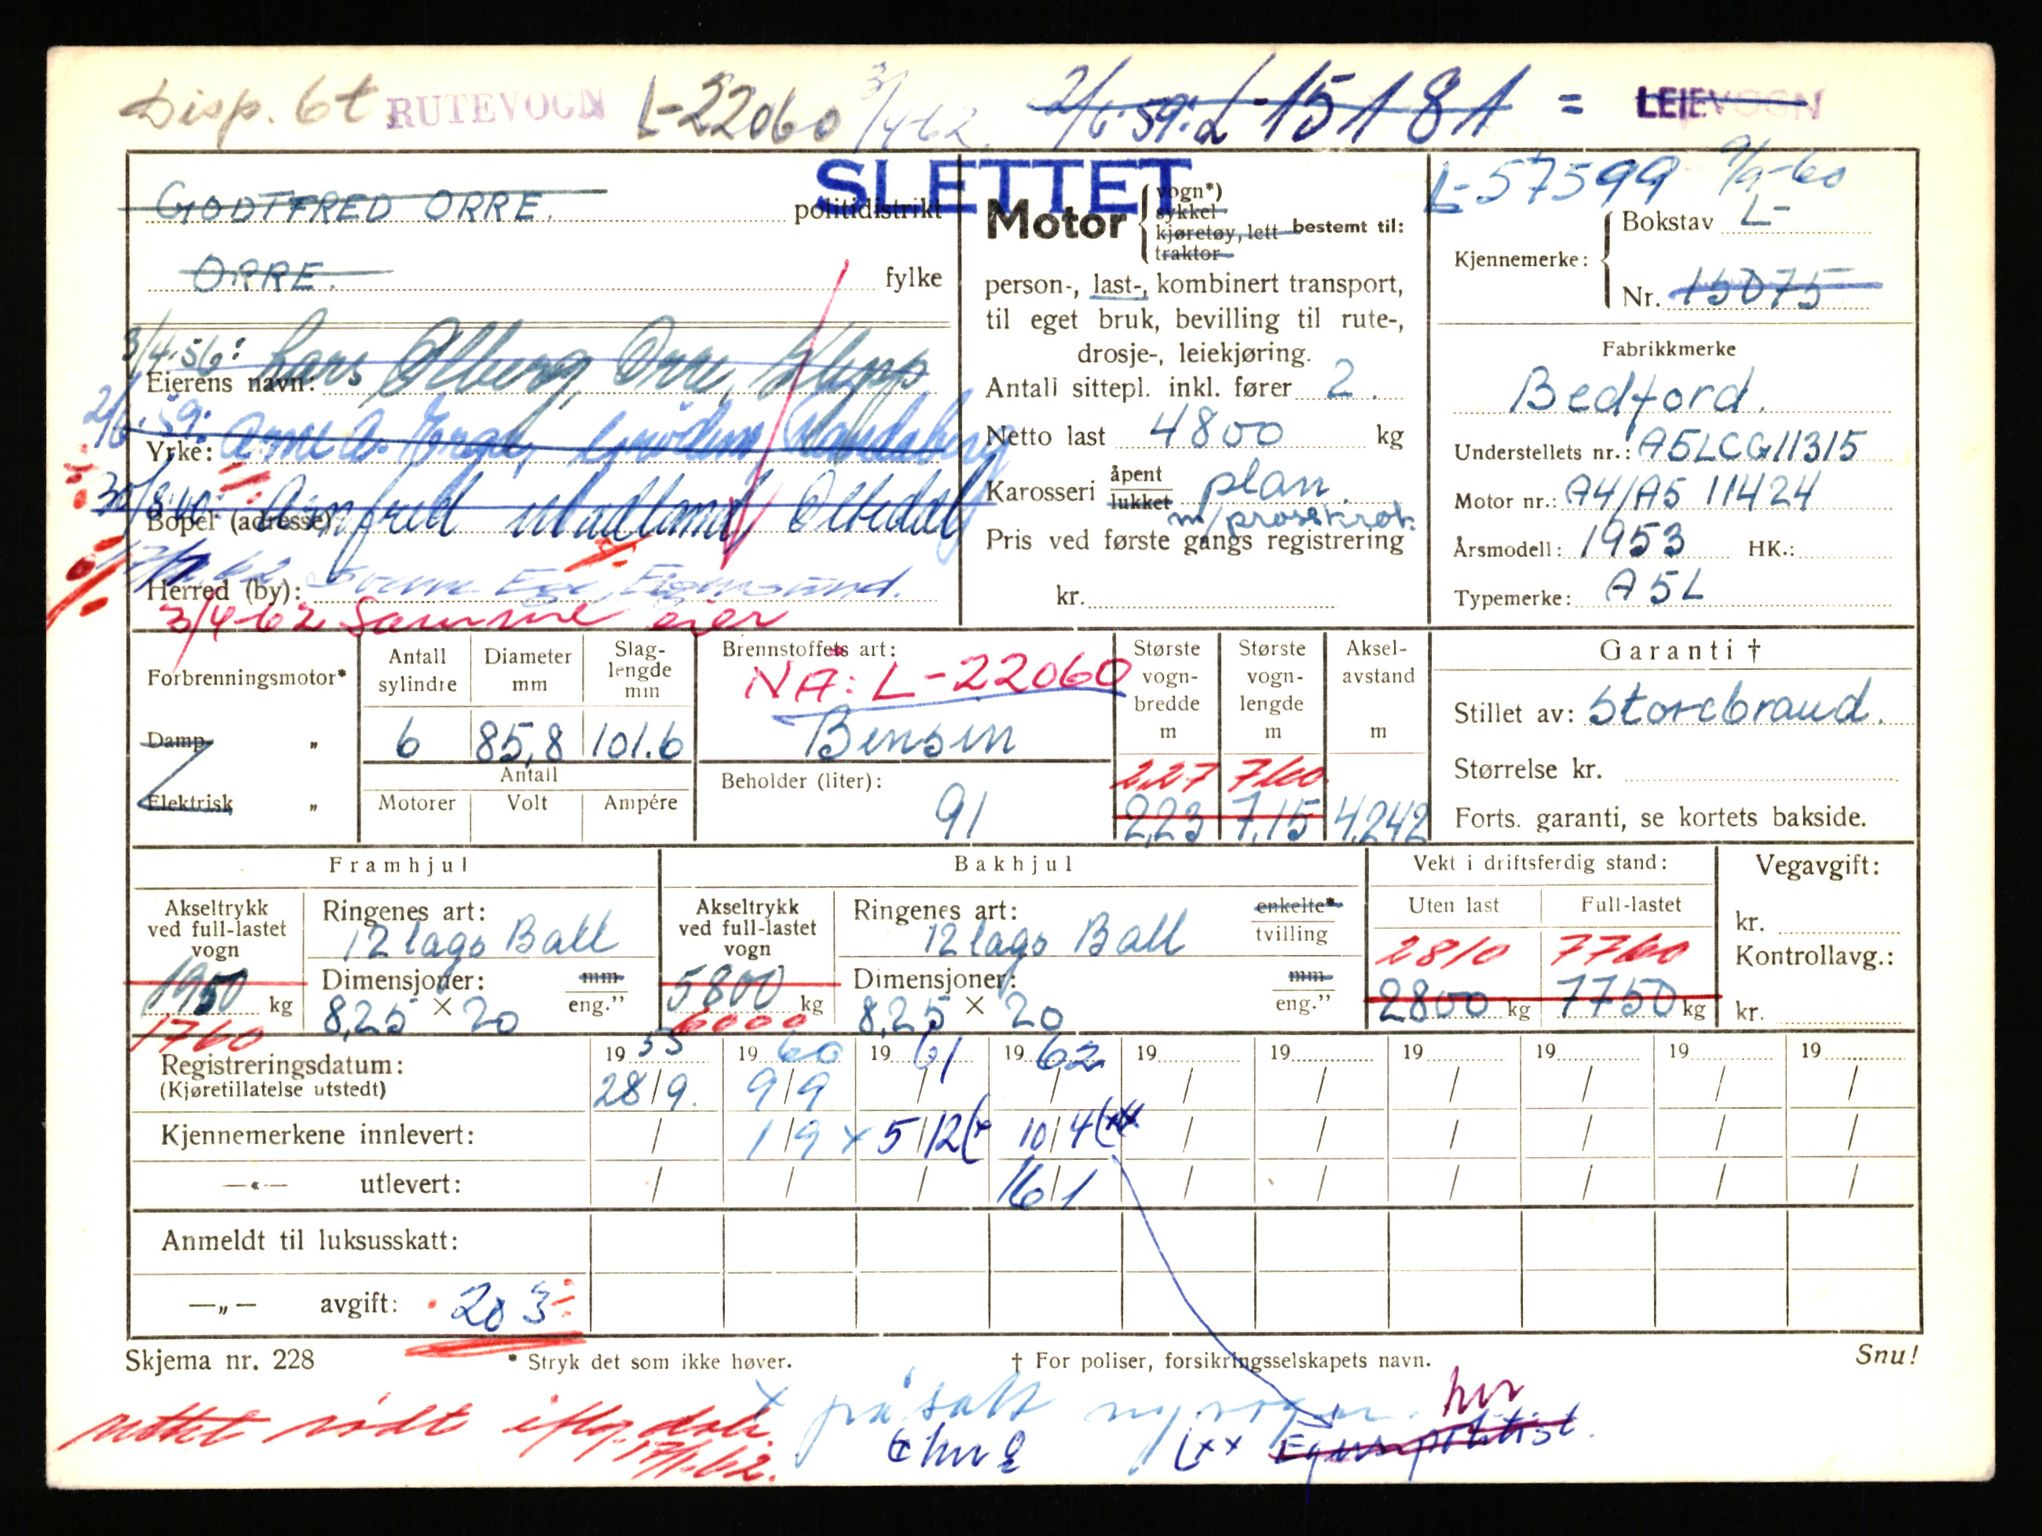 Disp. 6t RUTEVOGN L-22060 3/4-62 2/6.59: L-15181 = LEIEVOGN
SLETTET
GODTFRED ORRE. politidistrikt
ORRE. fylke
3/4.56: Lars Ølberg, Orre, Klepp
Eierens navn:
2/6.59: Arne A.
Yrke:
30/8.60: Arnfred Madland Oltedal
Bopel (adresse):
17/1.62 Svein Ege, Egersund.
Herred (by):
3/4-62 Samme eier
Motor { vogn*) sykkel kjøretøy, lett traktor bestemt til:
person-, last-, kombinert transport,
til eget bruk, bevilling til rute-,
drosje-, leiekjøring.
Antall sittepl. inkl. fører 2.
Netto last 4800 kg
Karosseri åpent lukket plan.
Pris ved første gangs registrering
kr.
L-57599 9/9-60
Kjennemerke: { Bokstav L-
Nr. 15075
Fabrikkmerke
Bedford.
Understellets nr.: A5LCG11315
Motor nr.: A4/A5 11424
Årsmodell: 1953 HK.:
Typemerke: A5L
Forbrenningsmotor*
Damp „
Elektrisk „
Antall sylindre
6
Diameter mm
85,8
Slag-lengde mm
101.6
Antall
Motorer Volt Ampére
Brennstoffets art:
NA: L-22060
Bensin
Beholder (liter):
91
Største vogn-bredde m
2,27
2,23
Største vogn-lengde m
7,60
7,15
Aksel-avstand m
4,242
Garanti †
Stillet av: Storebrand.
Størrelse kr.
Forts. garanti, se kortets bakside.
Framhjul
Akseltrykk ved full-lastet vogn
1950 kg
1760
Ringenes art:
12 lags Ball
Dimensjoner: mm
8,25 × 20 eng."
Bakhjul
Akseltrykk ved full-lastet vogn
5800 kg
6000
Ringenes art: enkelte* tvilling
12 lags Ball
Dimensjoner: mm
8,25 × 20 eng."
Vekt i driftsferdig stand:
Uten last Full-lastet
2810 7760
2800 kg 7750 kg
Vegavgift:
kr.
Kontrollavg.:
kr.
Registreringsdatum: 1955 1960 1961 1962 19 19 19 19 19 19
(Kjøretillatelse utstedt) 28/9. 9/9 / / / / / / / /
Kjennemerkene innlevert: / 1/9 x 5/12(x 10/4(xx / / / / / /
—«— utlevert: / / / 16/1 / / / / / /
Anmeldt til luksusskatt:
—„— avgift: 203
Skjema nr. 228 * Stryk det som ikke høver. † For poliser, forsikringsselskapets navn. Snu!
rettet rødt iflg. dok. 17/1.62.
x påsatt ny vogn. her
(xx